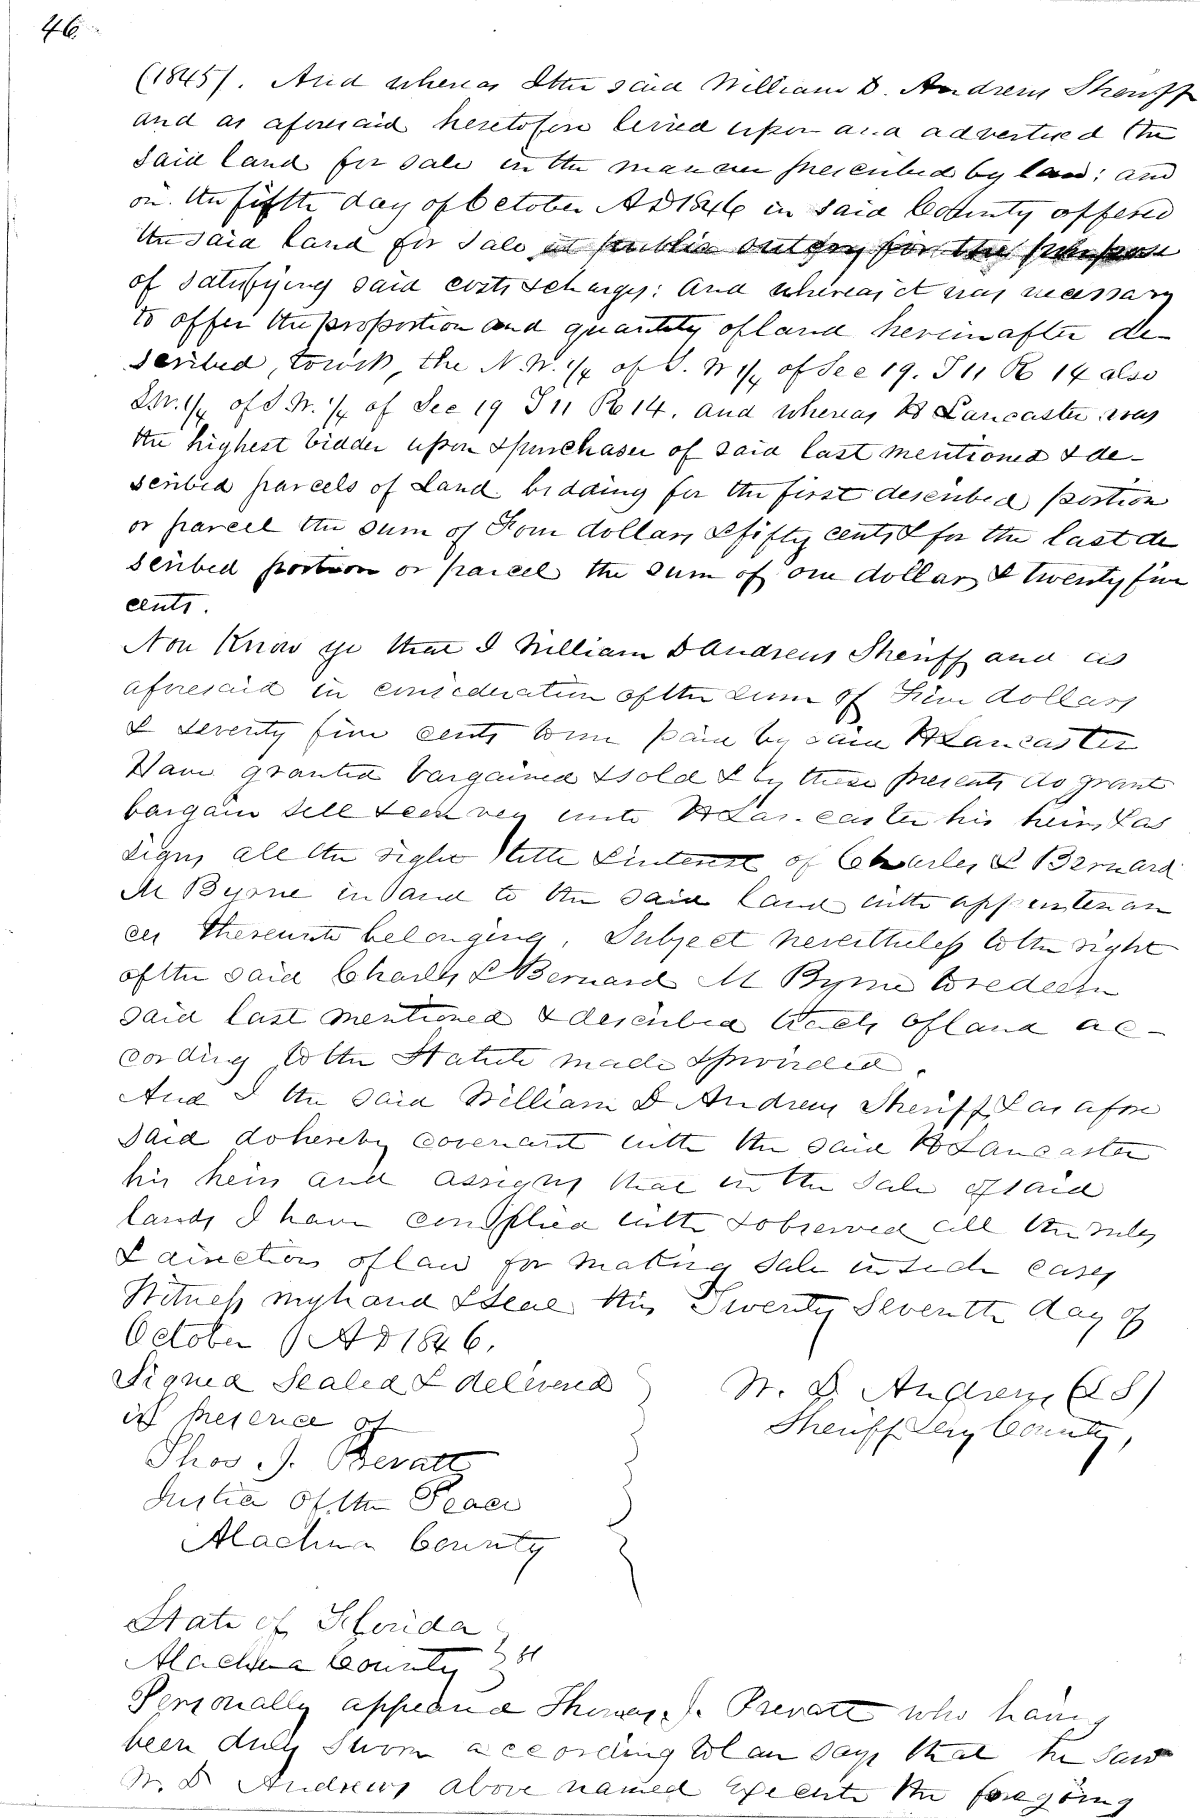 46
(1845). And whereas I the said William D. Andrews Sheriff
and as aforesaid heretofore levied upon and advertised the
said land for sale in the manner prescribed by law: and
on the fifth day of October AD 1846 in said County offered
the said land for sale at public outcry for the purpose
of satisfying said costs & charges: and whereas it was necessary
to offer the proportion and quantity of land hereinafter de-
scribed, towit, the N.W. 1/4 of S. W 1/4 of Sec 19. T 11 R 14 also
S.W. 1/4 of S.W. 1/4 of Sec 19 T 11 R 14. and whereas H Lancaster was
the highest bidder upon & purchaser of said last mentioned & de-
scribed parcels of Land bidding for the first described portion
or parcel the sum of Four dollars & fifty cents & for the last de
scribed portion or parcel the sum of one dollar & twenty five
cents.
Now Know ye that I William D Andrews Sheriff and as
aforesaid in consideration of the sum of Five dollars
& seventy five cents to me paid by said H Lancaster
Have granted bargained & sold & by these presents do grant
bargain sell & convey unto H Lancaster his heirs & as
signs all the right title & interest of Charles & Bernard
M Byrne in and to the said land with appurtenan
ces thereunto belonging. Subject nevertheless to the right
of the said Charles & Bernard M Byrne to redeem
said last mentioned & described tracts of land ac-
cording to the Statute made & provided.
And I the said William D Andrews Sheriff & as afore
said do hereby covenant with the said H Lancaster
his heirs and assigns that in the sale of said
lands I have complied with & observed all the rules
& directions of law for making sale in such cases
Witness my hand & Seal this Twenty Seventh day of
October AD 1846.
Signed Sealed & delivered
in presence of
W. D. Andrews (LS)
Sheriff Levy County,
Thos. J. Prevatt
Justice of the Peace
Alachua County
State of Florida
Alachua County } ss
Personally appeared Thomas J. Prevatt who having
been duly sworn according to law says that he saw
W. D Andrews above named execute the foregoing